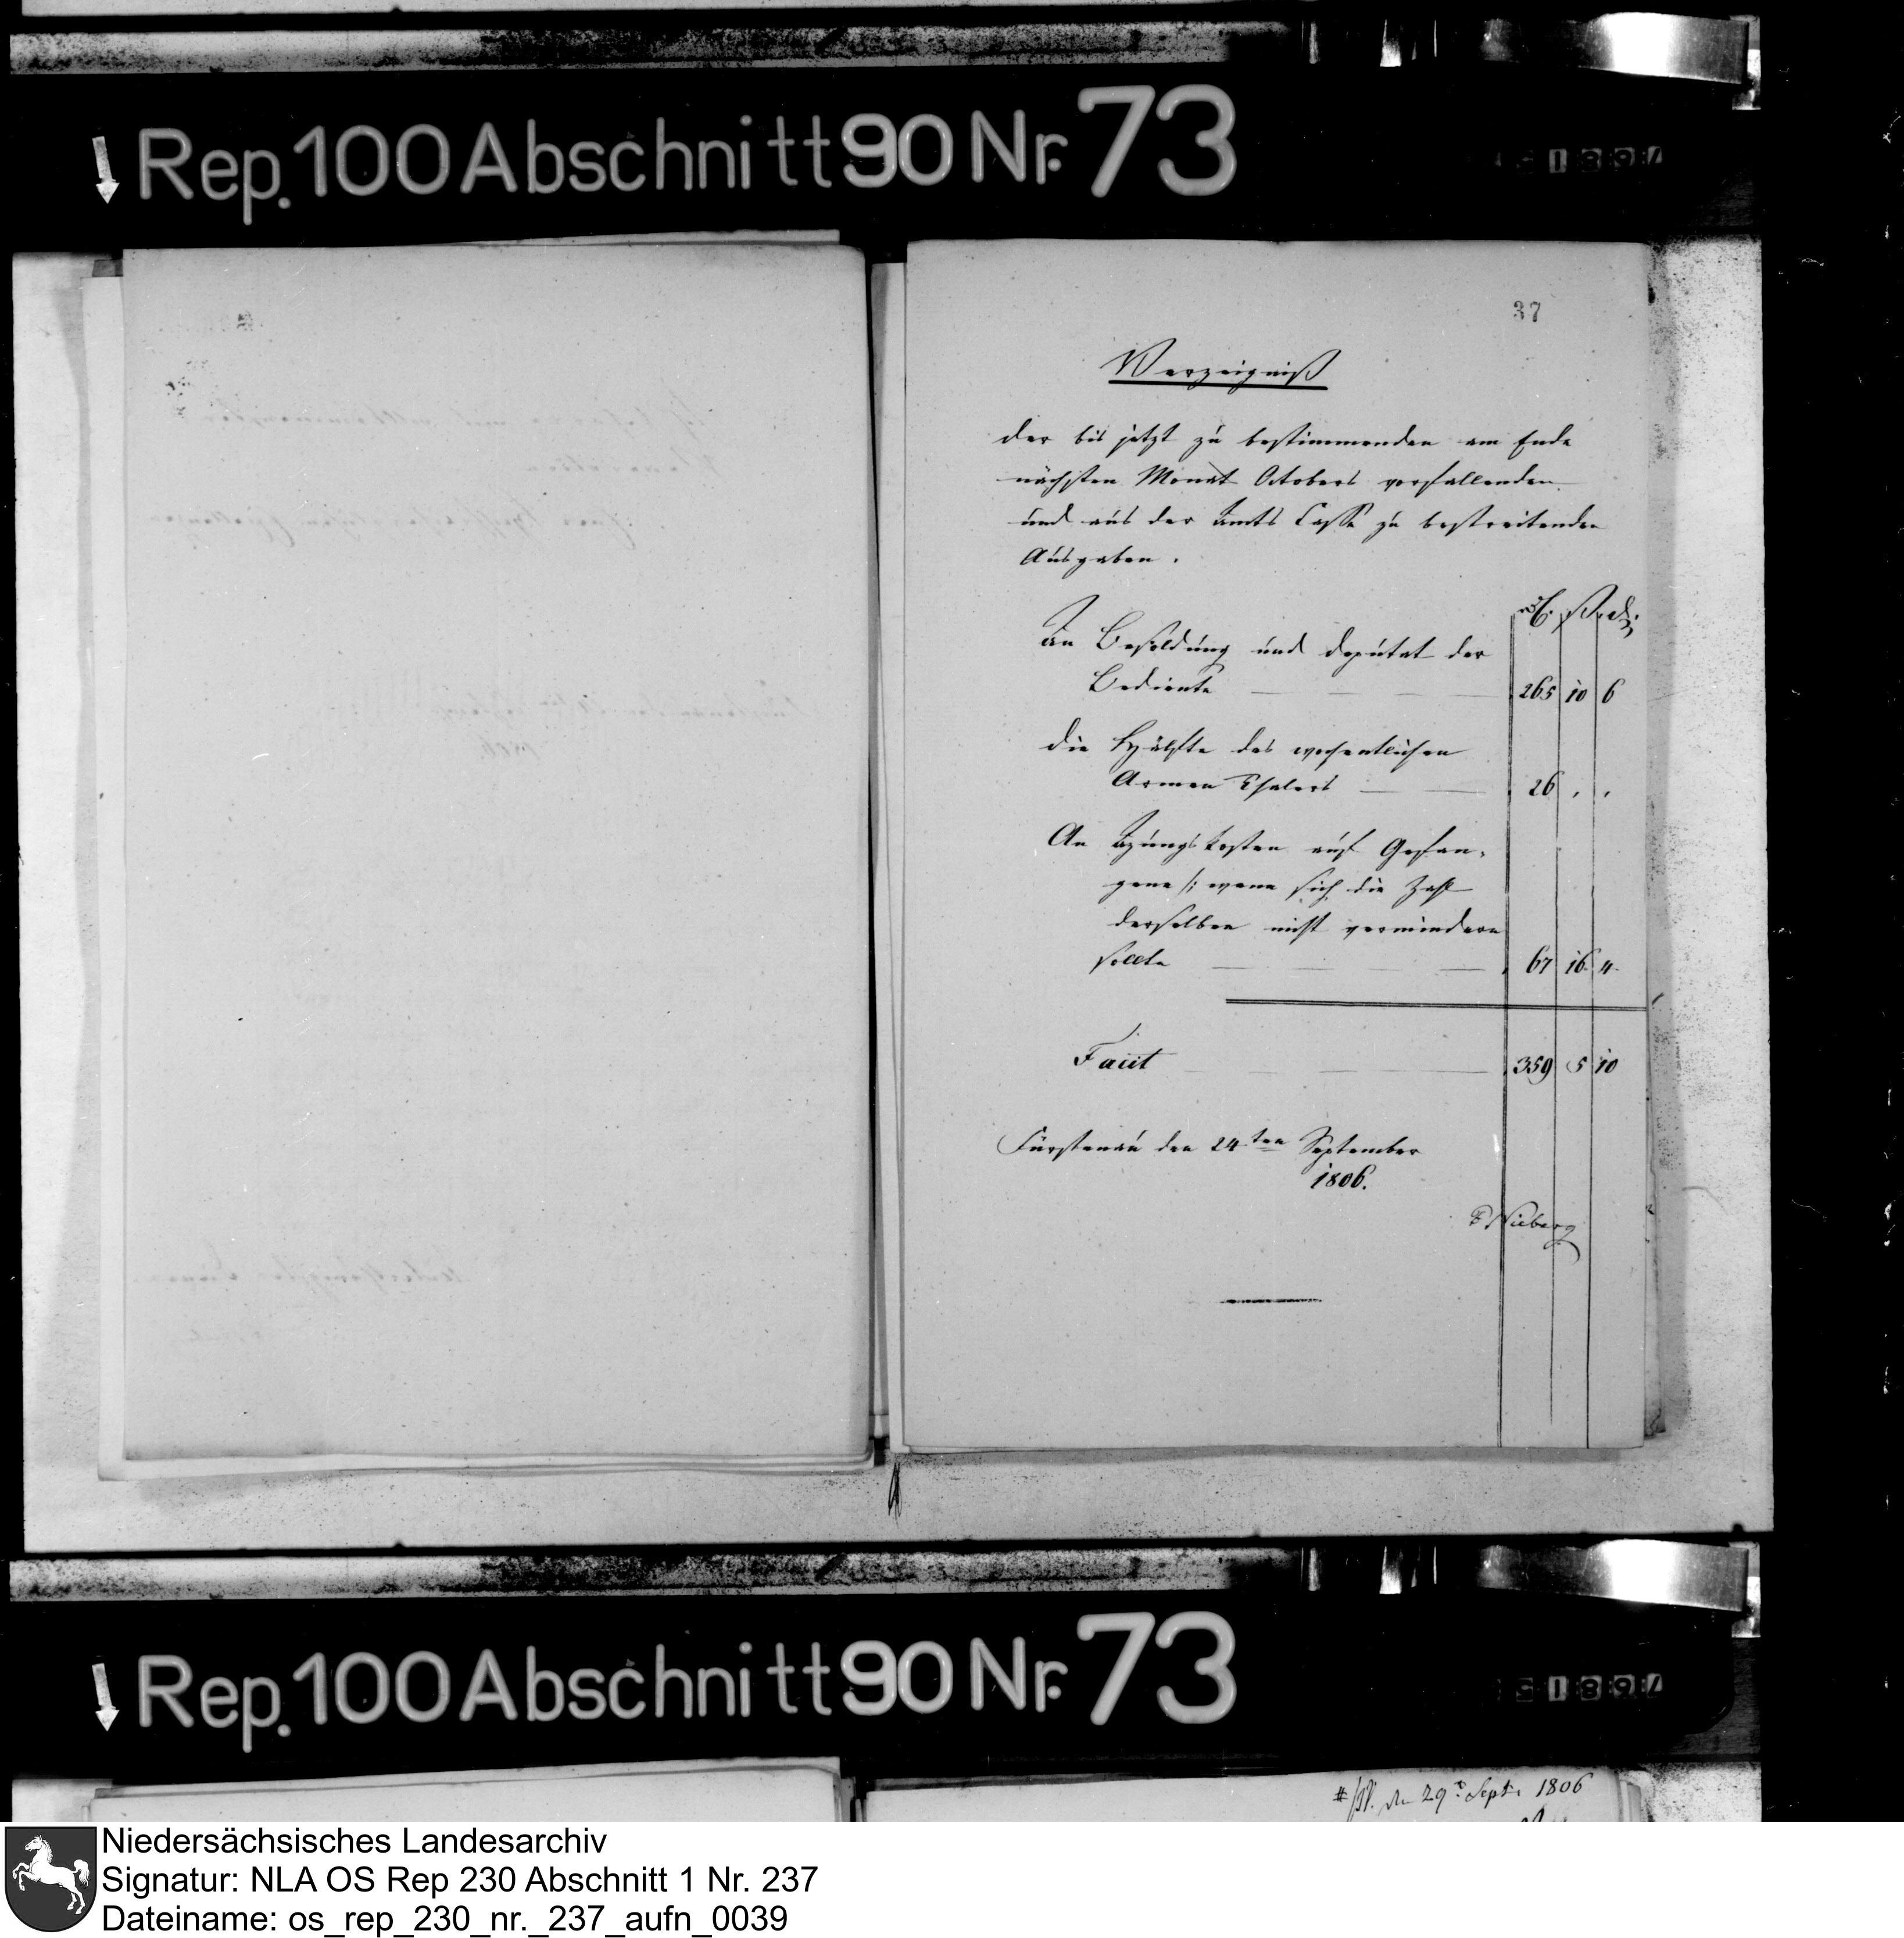 Rep. 100 Abschnitt 90 Nr. 73
37
Verzeigniß
der bis jetzt zu bestimmenden am Ende
nächsten Monat Octobers vorfallenden
und aus der Amts Casse zu bestreitenden
Ausgaben.
An Besoldung und Deputat der
Bediente 265 10 6
die Hälfte des wochentlichen
Armen Thalers 26 " "
An Azungskosten auf Gefan-
gene /: wenn sich die Zahl
derselben nicht vermindern
sollte 67 16 4
Facit 359 5 10
Fürstenau den 24ten September
1806.
Nieberg
Rep. 100 Abschnitt 90 Nr. 73
den 29t Sept. 1806
Niedersächsisches Landesarchiv
Signatur: NLA OS Rep 230 Abschnitt 1 Nr. 237
Dateiname: os_rep_230_nr._237_aufn_0039